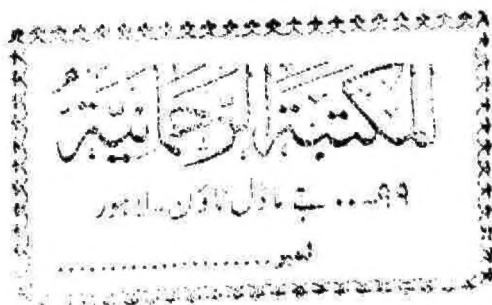 المكتبة الرحمانية
۹۹... جے ماڈل ٹاؤن۔ لاہور
نمبر ..............................